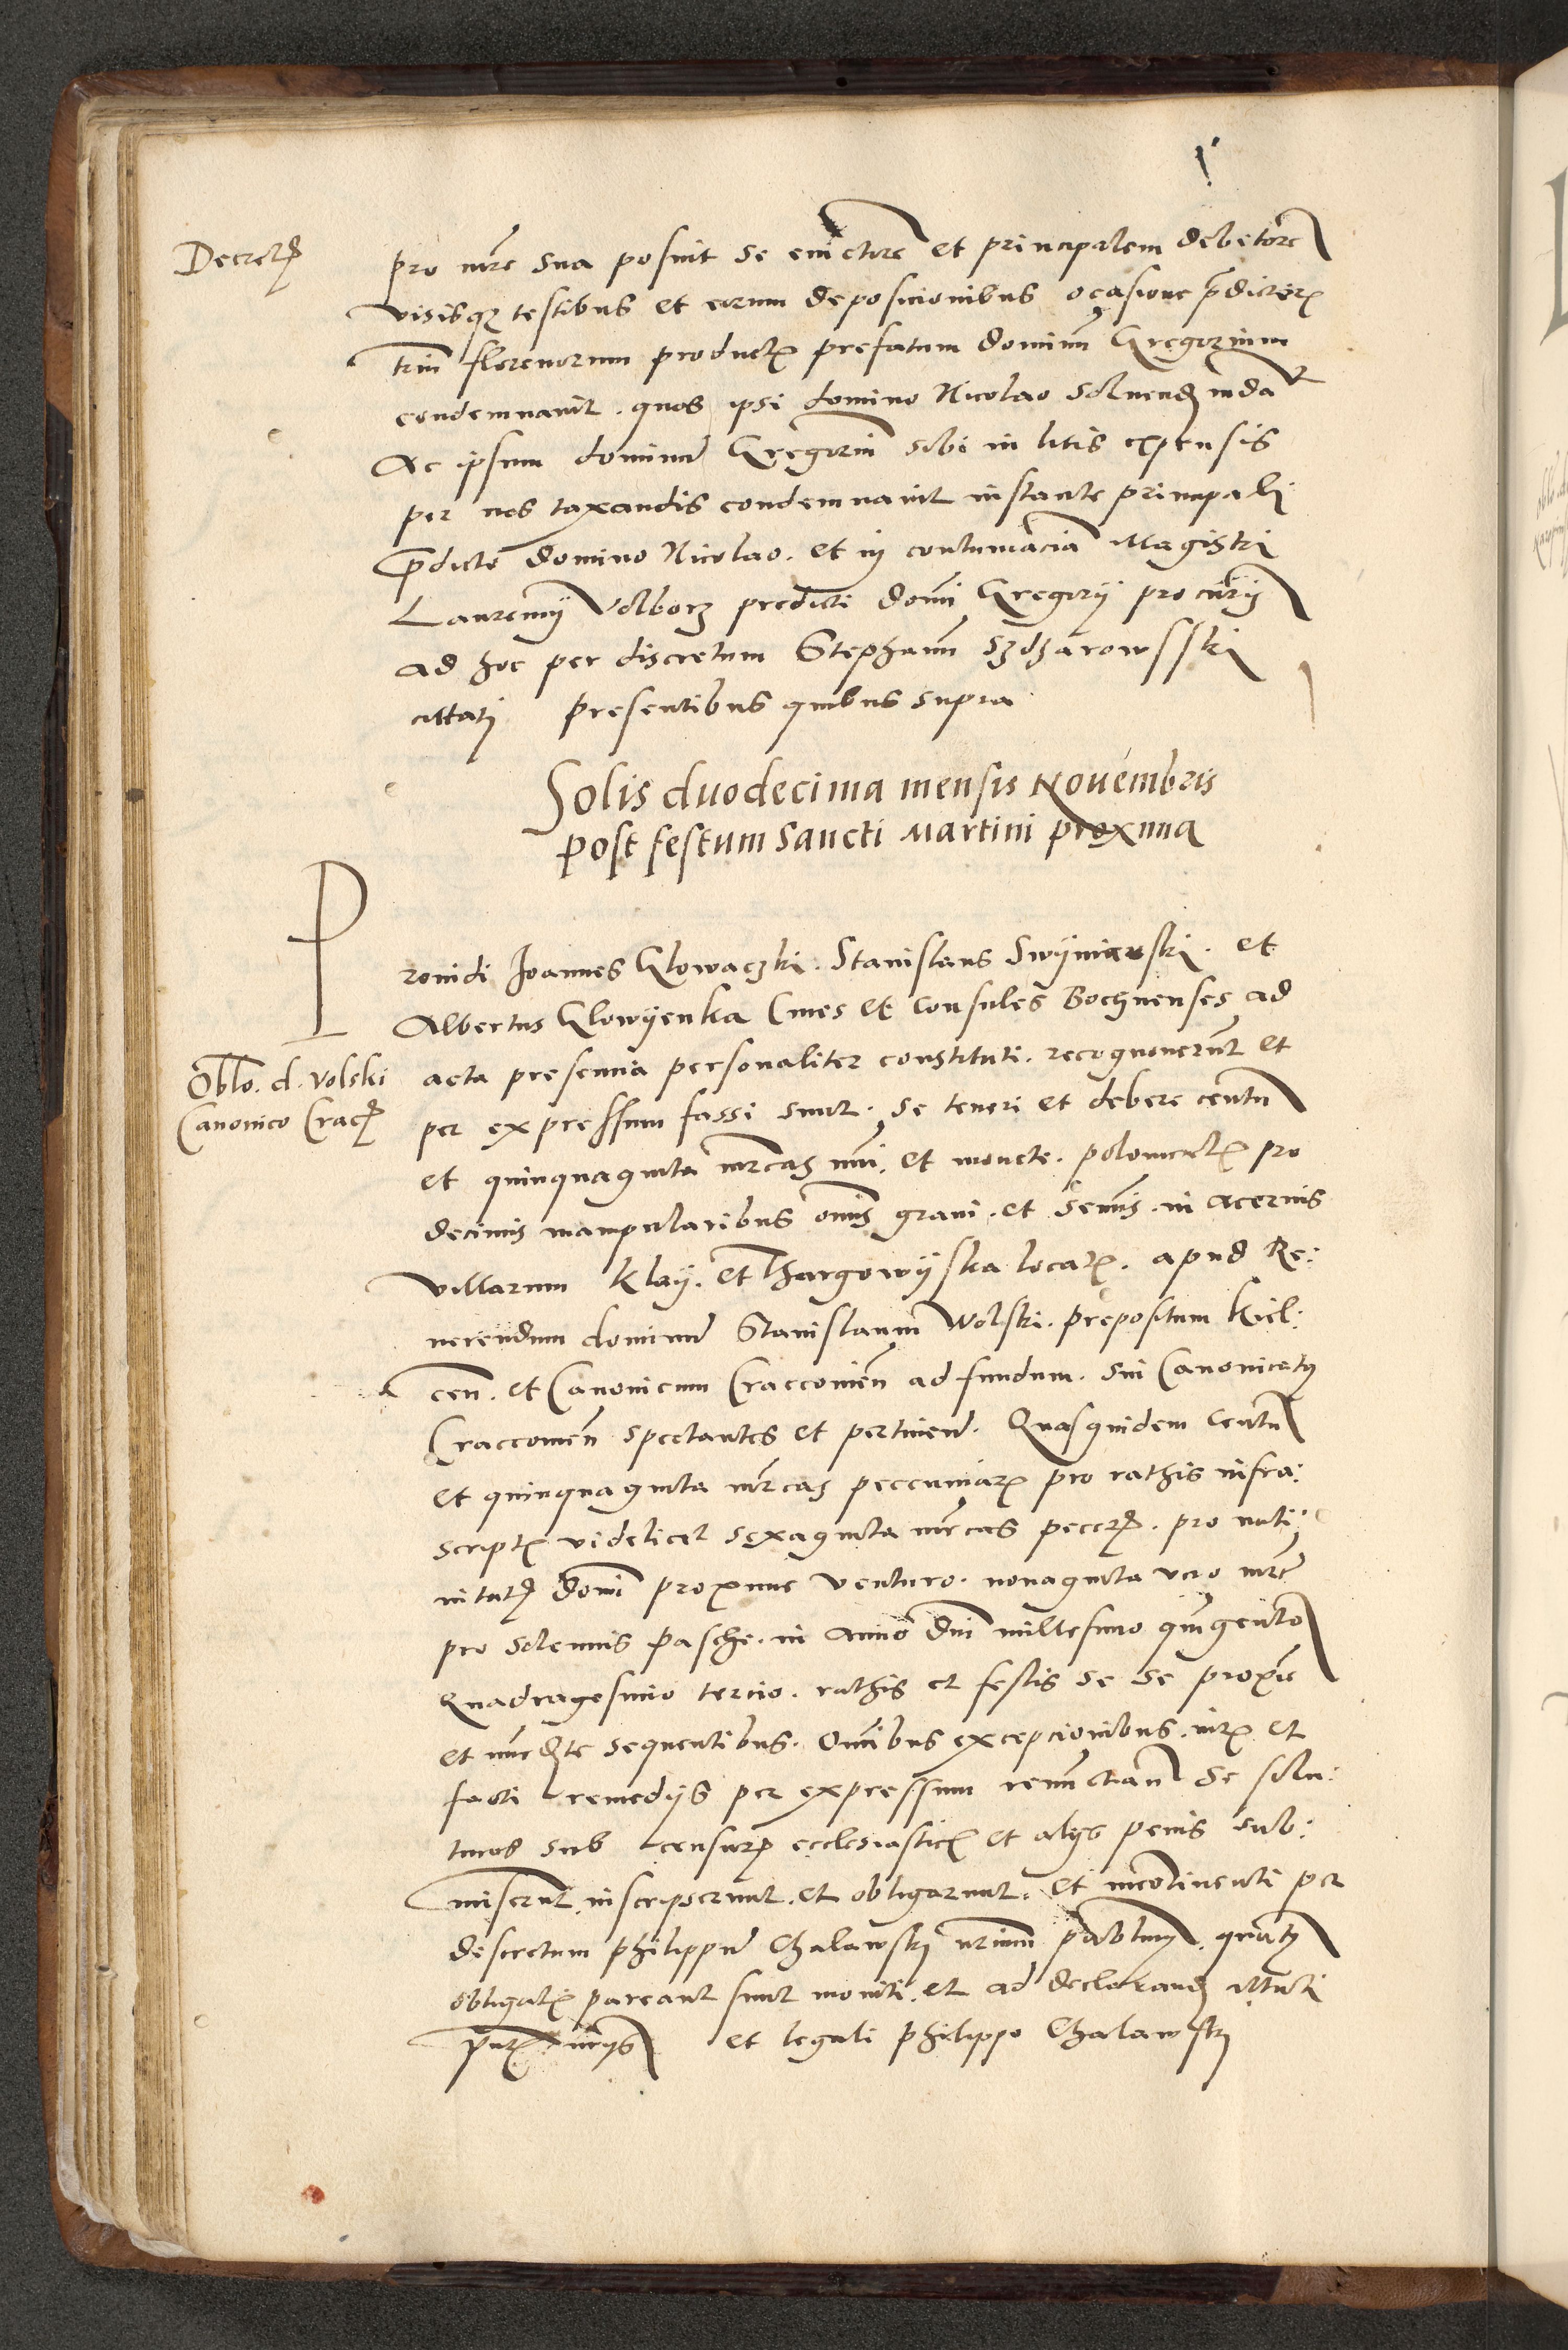 Decret
pro mre sua posuit se evictore et principalem debitore
visisque testibus et eorum deposicionibus ocasione predictor
trium florenorum product prefatum dominum Gregorium
condemnavit. quos ipsi domino Nicolao solvend
Ac ipsum dominum Gregorium sibi in litis expensis
per nos taxandis condemnavit instante principali
predicto domino Nicolao. et in contumaciam Magistri
Laurencij Volborz predicti domini Gregorij procurij
ad hoc per discretum Stephanum Szdzarowsski
cittati presentibus quibus supra
Solis duodecima mensis Novembris
post festum sancti Martini proxima
Providi Joannes Glowaczki. Stanislaus Swyniarski. et
Albertus Glowyenka Cives et Consules Bochnenses ad
Oblo. d. Volski
Canonico Crac
acta presencia personaliter constituti. recognoverunt et
per expressum fassi sunt. se teneri et debere centum
et quinquaginta mrcas num. et monete. polonicalis pro
decimis manipularibus omnis grani. et seminis. in acervis
villarum Klay. et Thargowyska locat. apud Re:
verendum dominum Stanislaum Wolski. prepositum Kiel:
cen. et Canonicum Craccovien ad fundum. sui Canonicatus
Craccovien spectantes et pertinen. Quasquidem centum
et quinquaginta mrcas peccuniar pro rathis infra:
script videlicet sexaginta mrcas peccun. pro nati:
vitate domini proxime venturo. nonaginta vero mrc
pro solemnis pasche. in anno dni millesimo quingento
Quadragesimo tercio. rathis et festis se se proxime
et immediate sequentibus. Omnibus excepcionibus. iuris et
facti remedijs per expressum renunctian se solu:
turos sub censuris ecclesiasticis et alijs penis sub:
miserunt. inscripserunt. et obligarunt. et incontinenti per
discretum Philippum Chalawski obligat pareant sunt moniti. et ad declarand cittati
et legali Philippo Chalawski